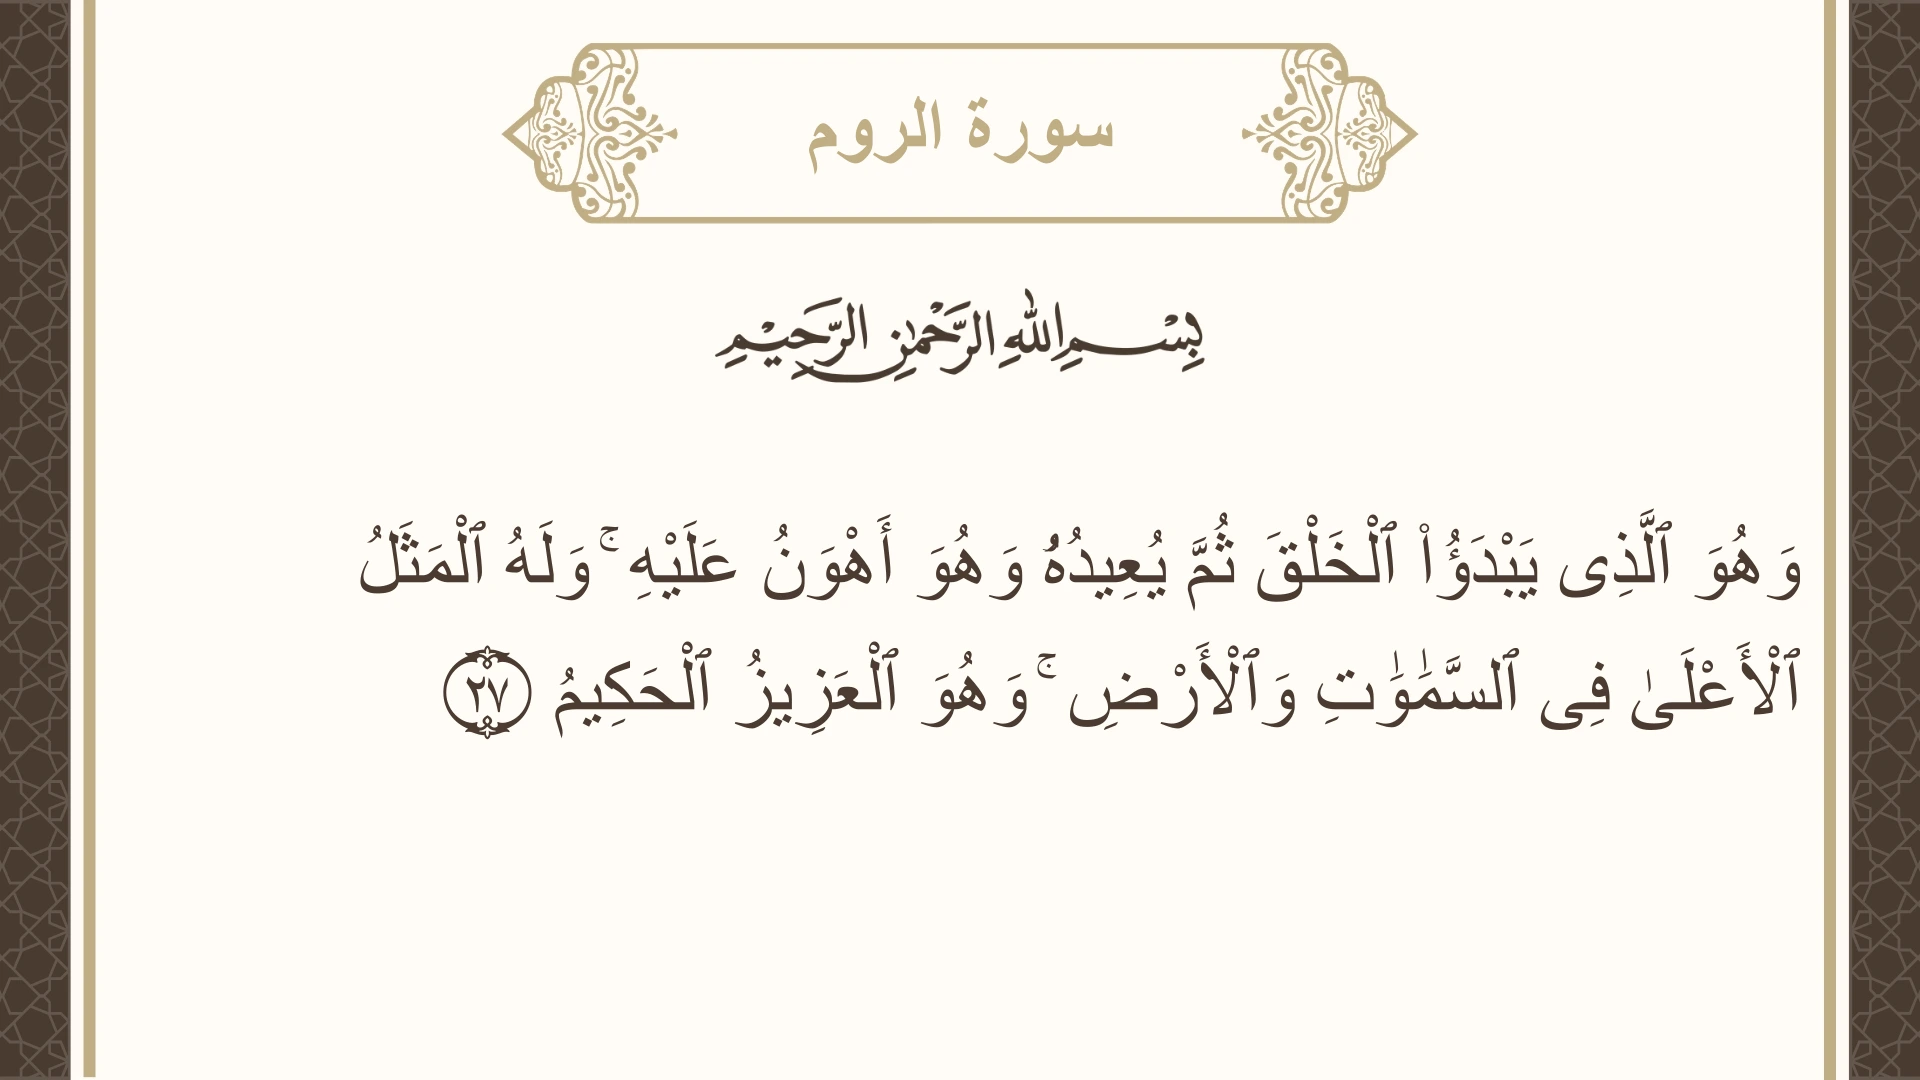 سورة الروم
بِسْمِ اللهِ الرَّحْمٰنِ الرَّحِيْمِ
وَهُوَ ٱلَّذِى يَبْدَؤُا۟ ٱلْخَلْقَ ثُمَّ يُعِيدُهُۥ وَهُوَ أَهْوَنُ عَلَيْهِ ۚ وَلَهُ ٱلْمَثَلُ
ٱلْأَعْلَىٰ فِى ٱلسَّمَـٰوَٰتِ وَٱلْأَرْضِ ۚ وَهُوَ ٱلْعَزِيزُ ٱلْحَكِيمُ ٢٧